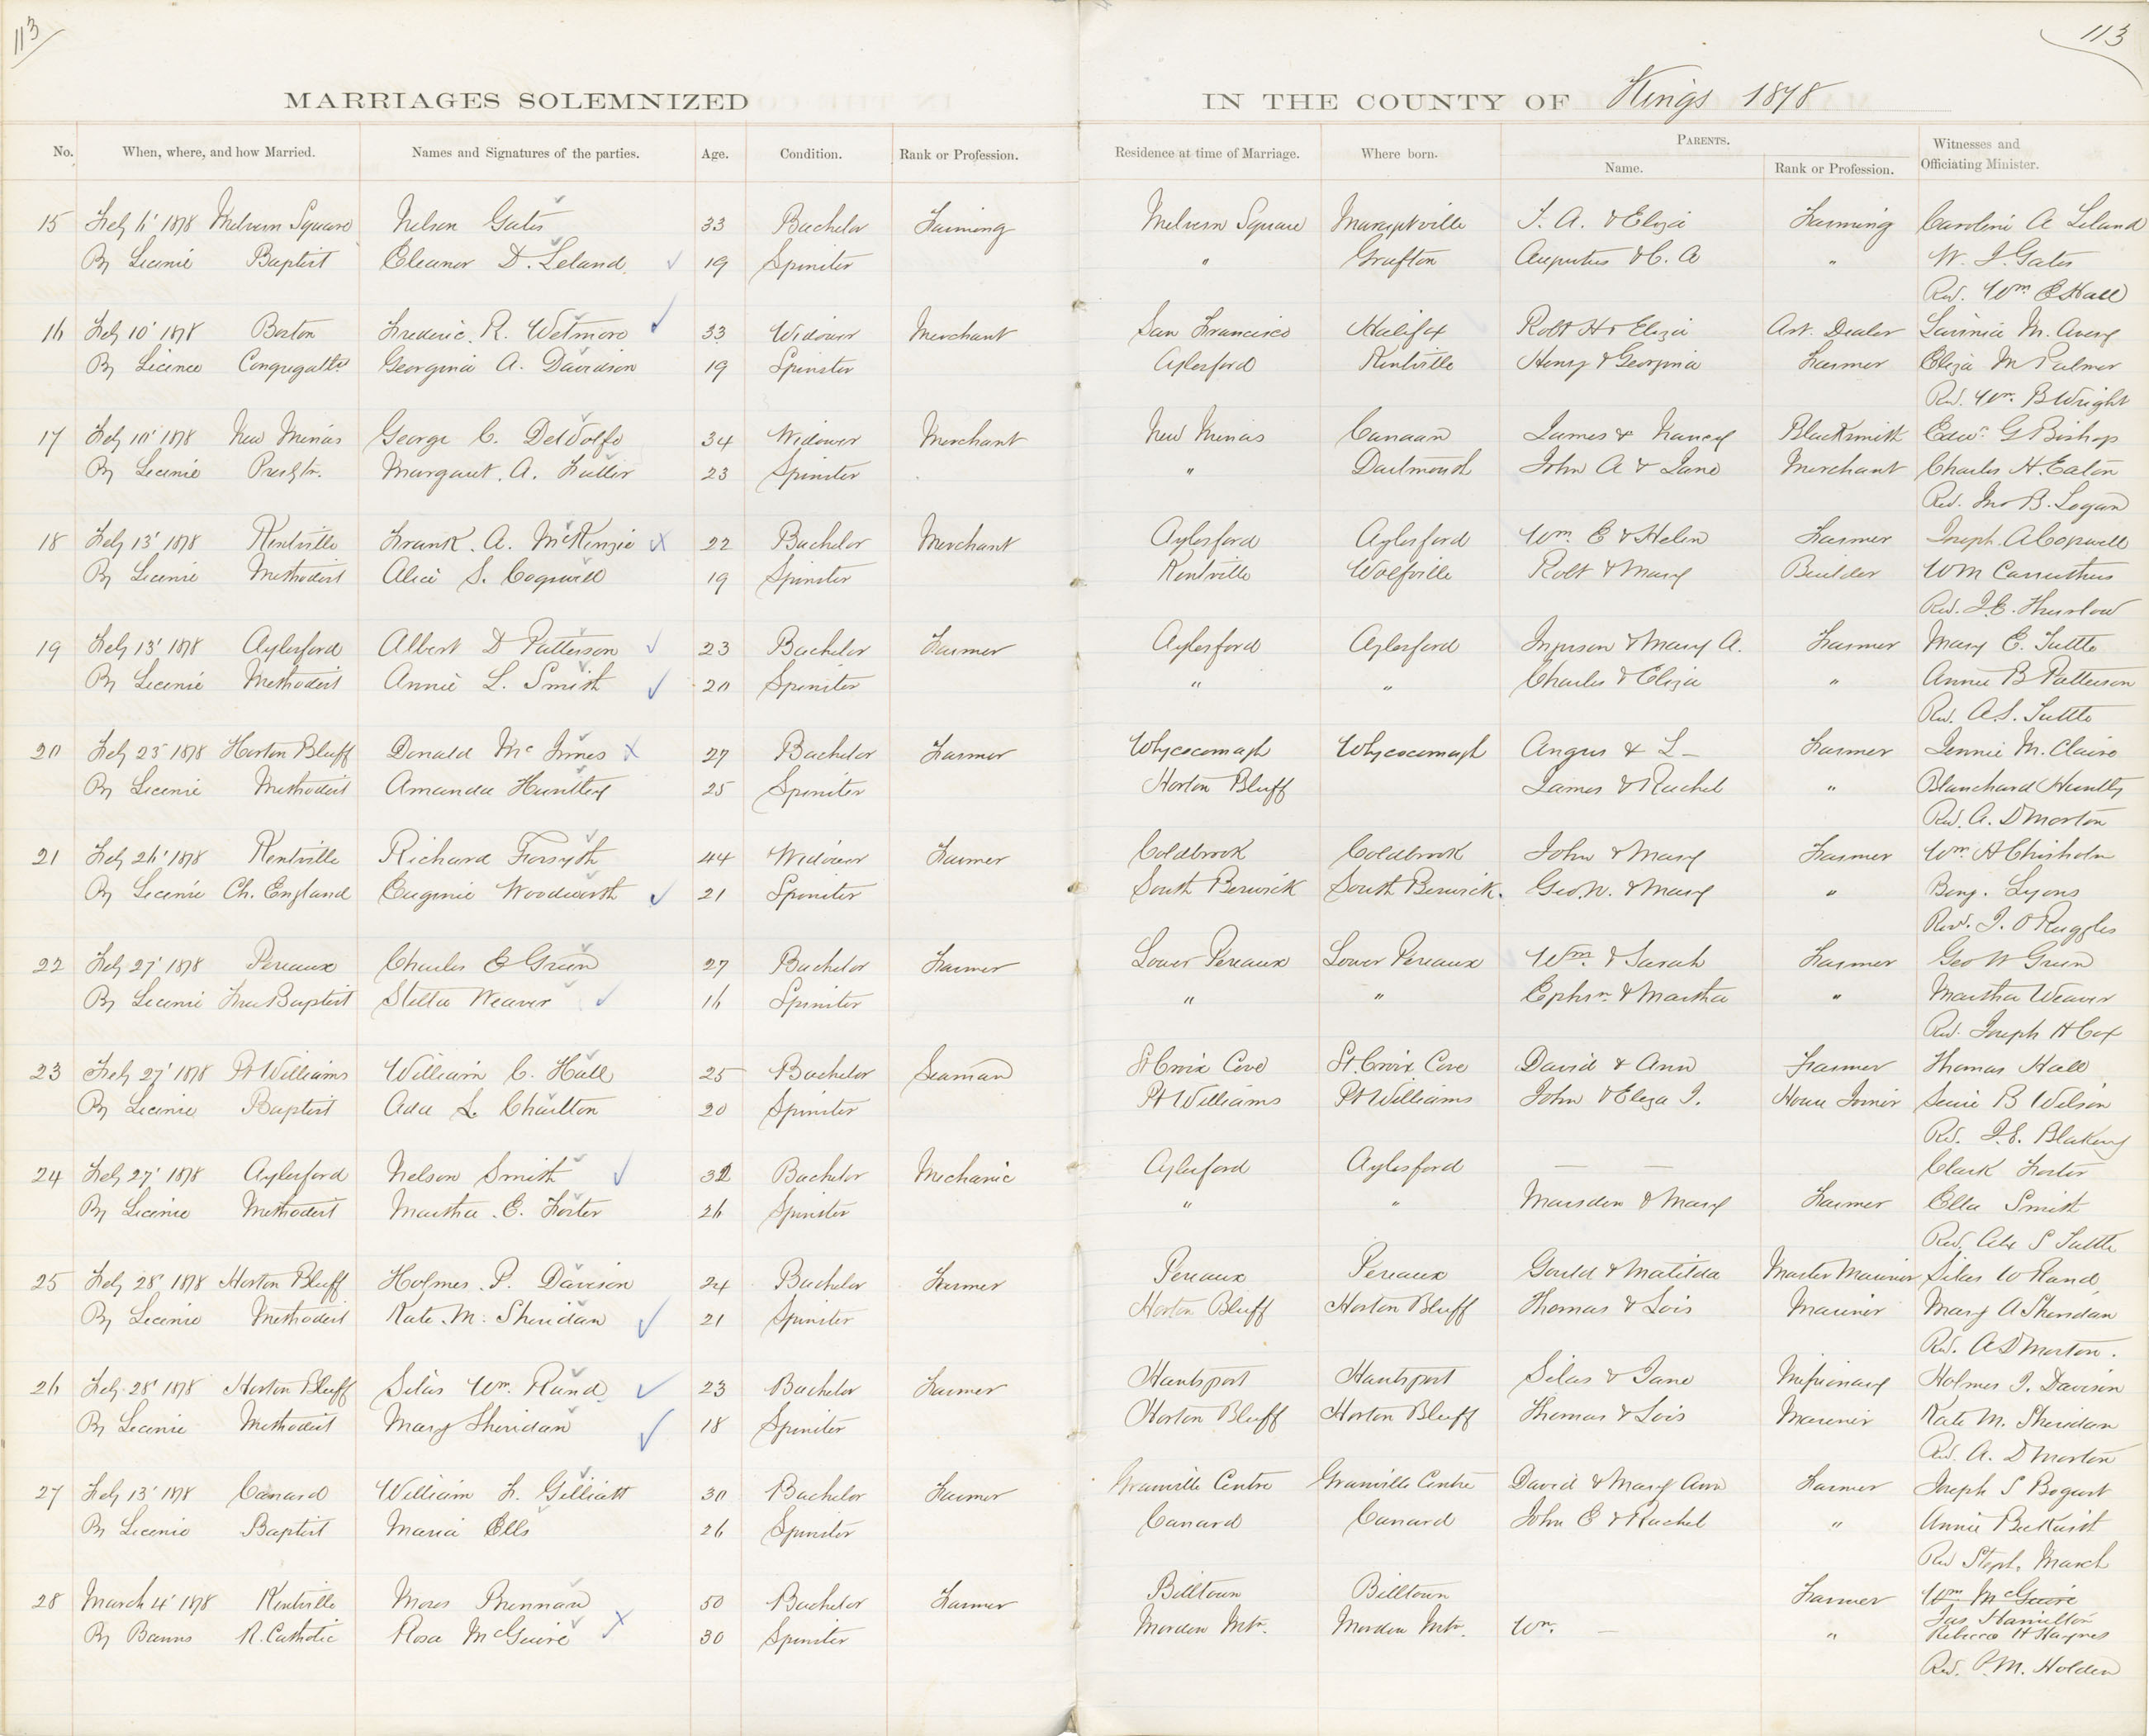 113
113
MARRIAGES SOLEMNIZED IN THE COUNTY OF Kings 1878
No. When, where, and how Married. Names and Signatures of the parties. Age. Condition. Rank or Profession. Residence at time of Marriage. Where born. PARENTS. Name. Rank or Profession. Witnesses and Officiating Minister.
15 Feby 6' 1878 Melvern Square Nelson Gates 33 Bachelor Farming Melvern Square Margaretville T. A. & Eliza Farming Caroline A Leland
By Licence Baptist Eleanor D. Leland 19 Spinster " Grafton Augustus & C. A " W. J. Gates
Rev. Wm E Hall
16 Feby 10' 1878 Boston Frederic. R. Wetmore 33 Widower Merchant San Francisco Halifax Robt H & Eliza Art. Dealer Lavinia M. Avery
By Licence Congregatl. Georgina A. Davidson 19 Spinster Aylesford Kentville Henry & Georgina Farmer Eliza M Palmer
Rev. Wm. B Wright
17 Feby 10' 1878 New Minas George C. DeWolfe 34 Widower Merchant New Minas Canaan James & Nancy Blacksmith Edwd G Bishop
By Licence Presbtn. Margaret. A. Fuller 23 Spinster " Dartmouth John A & Jane Merchant Charles H. Eaton
Rev. Jno B. Logan
18 Feby 13' 1878 Kentville Frank. A. McKenzie 22 Bachelor Merchant Aylesford Aylesford Wm. E & Helen Farmer Joseph A Cogswell
By Licence Methodist Alice S. Cogswell 19 Spinster Kentville Wolfville Robt & Mary Builder WM Carruthers
Rev. I. E. Thurlow
19 Feby 13' 1878 Aylesford Albert D Patterson 23 Bachelor Farmer Aylesford Aylesford & Mary A. Farmer Mary E. Tuttle
By Licence Methodist Annie L. Smith 20 Spinster " " Charles & Eliza " Annie B Patterson
Rev. A. S. Tuttle
20 Feby 23' 1878 Horton Bluff Donald Mc Innes 27 Bachelor Farmer Whycocomagh Whycocomagh Angus & L— Farmer Jennie M. Claire
By Licence Methodist Amanda Huntley 25 Spinster Horton Bluff James & Rachel " Blanchard Huntly
Rev. A. D Morton
21 Feby 26' 1878 Kentville Richard Forsyth 44 Widower Farmer Coldbrook Coldbrook John & Mary Farmer Wm. A Chisholm
By Licence Ch. England Eugenie Woodworth 21 Spinster South Berwick South Berwick. Geo. W. & Mary " Benj. Lyons
Rev. J. O Ruggles
22 Feby 27' 1878 Pereaux Charles E Green 27 Bachelor Farmer Lower Pereaux Lower Pereaux Wm. & Sarah Farmer Geo W Green
By Licence Free Baptist Stella Weaver 16 Spinster " " Ephrm. & Martha " Martha Weaver
Rev. Joseph H Cox
23 Feby 27' 1878 Pt Williams William C. Hall 25 Bachelor Seaman St Croix Cove St. Croix Cove David & Ann Farmer Thomas Hall
By Licence Baptist Ada L. Charlton 20 Spinster Pt Williams Pt Williams John & Eliza J. House Joiner B Wilson
Rev. J. E. Blakeny
24 Feby 27' 1878 Aylesford Nelson Smith 32 Bachelor Mechanic Aylesford Aylesford — — Clark Foster
By Licence Methodist Martha. E. Foster 26 Spinster " " Marsden & Mary Farmer Ella Smith
Rev. Alx S Tuttle
25 Feby 28' 1878 Horton Bluff Holmes. P. Davison 24 Bachelor Farmer Pereaux Pereaux Gould & Matilda Master Mariner Silas W Rand
By Licence Methodist Kate. M. Sheridan 21 Spinster Horton Bluff Horton Bluff Thomas & Lois Mariner Mary A Sheridan
Rev. A D Morton.
26 Feby 28' 1878 Horton Bluff Silas Wm. Rand 23 Bachelor Farmer Hantsport Hantsport Silas & Jane Missionary Holmes J. Davison
By Licence Methodist Mary Sheridan 18 Spinster Horton Bluff Horton Bluff Thomas & Lois Mariner Kate M. Sheridan
Rev. A. D Morton
27 Feby 13' 1878 Canard William F. Gilliatt 30 Bachelor Farmer Granville Centre Granville Centre David & Mary Ann Farmer Joseph S Bogart
By Licence Baptist Maria Ells 26 Spinster Canard Canard John E & Rachel " Annie Beckwith
Rev Steph. March
28 March 4' 1878 Kentville Moses Brennan 50 Bachelor Farmer Billtown Billtown Farmer Wm McGuire
Jas Hamilton
By Banns R. Catholic Rosa McGuire 30 Spinster Morden Mtn. Morden Mtn. Wm. — " Rebecca H Haynes
Rev. P. M. Holden